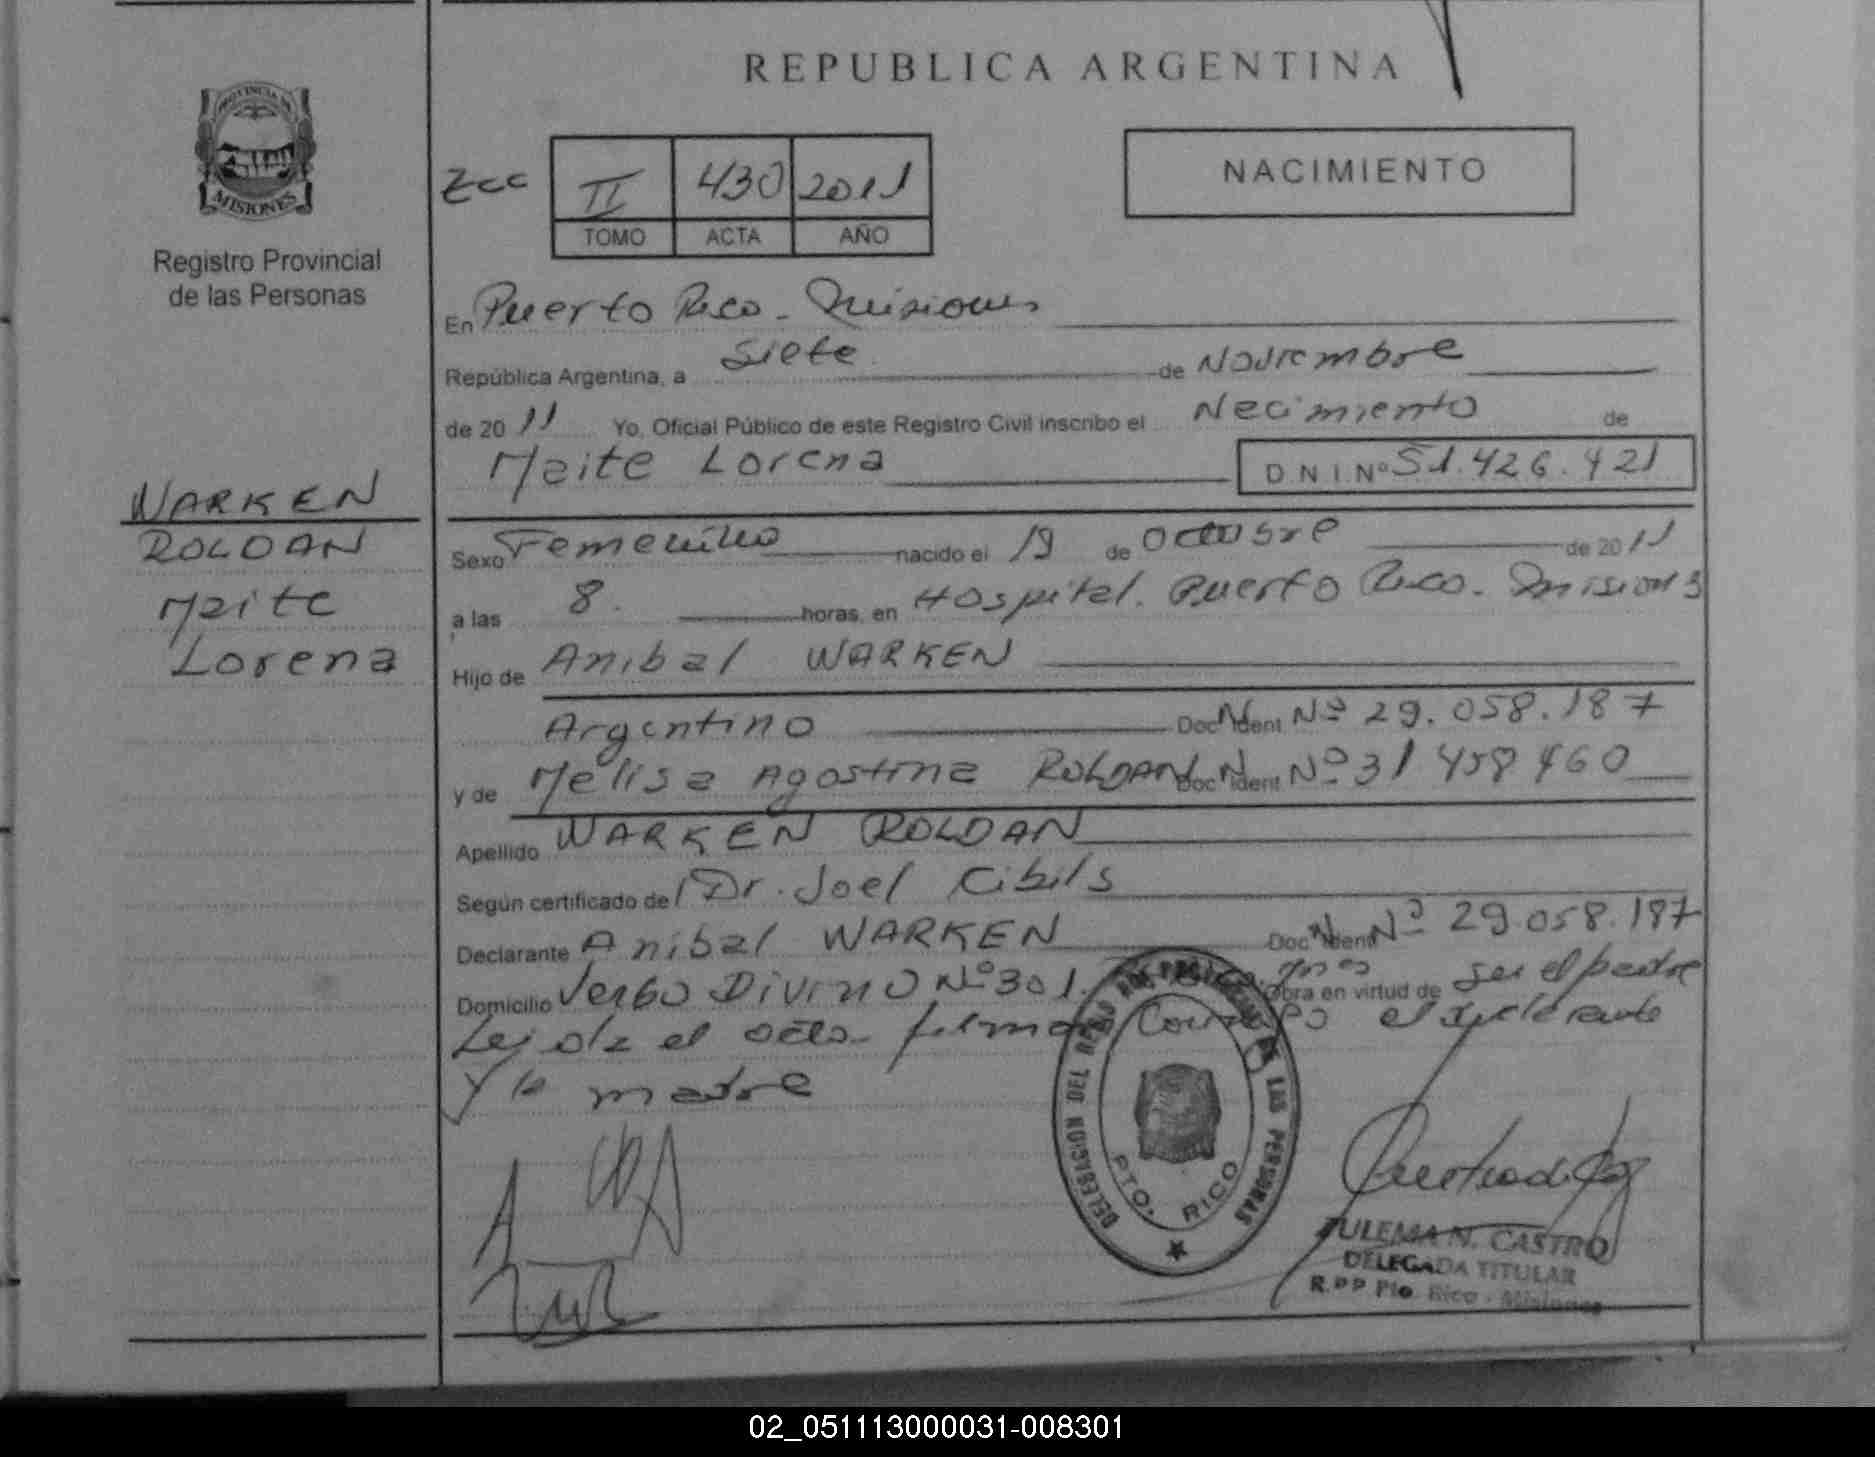 REPUBLICA ARGENTINA
PROVINCIA DE
MISIONES
Registro Provincial
de las Personas
II 430 2011
TOMO ACTA AÑO
NACIMIENTO
En Puerto Rico - Misiones
República Argentina, a Siete de Noviembre
de 2011 Yo, Oficial Público de este Registro Civil inscribo el Nacimiento de
Maite Lorena D N I Nº 51.426.421
WARKEN
ROLDAN
Maite
Lorena
Sexo Femenino nacido el 19 de Octubre de 2011
a las 8. horas, en Hospital. Puerto Rico - Misiones
Hijo de Anibal WARKEN
Argentino Doc. Ident. Nº 29.058.187
y de Melisa Agostina ROLDAN Doc. Ident. Nº 31 458 460
Apellido WARKEN ROLDAN
Según certificado del Dr. Joel Cibils
Declarante Anibal WARKEN Doc. Ident. Nº 29.058.187
Domicilio Verbo Divino Nº 301. Obra en virtud de ser el padre
Leida el acta firman el declarante
y la madre
DELEGACION DEL DE LAS PERSONAS
PTO. RICO
ZULEMA N. CASTRO
DELEGADA TITULAR
R.P.P Pto. Rico - Misiones
02_051113000031-008301